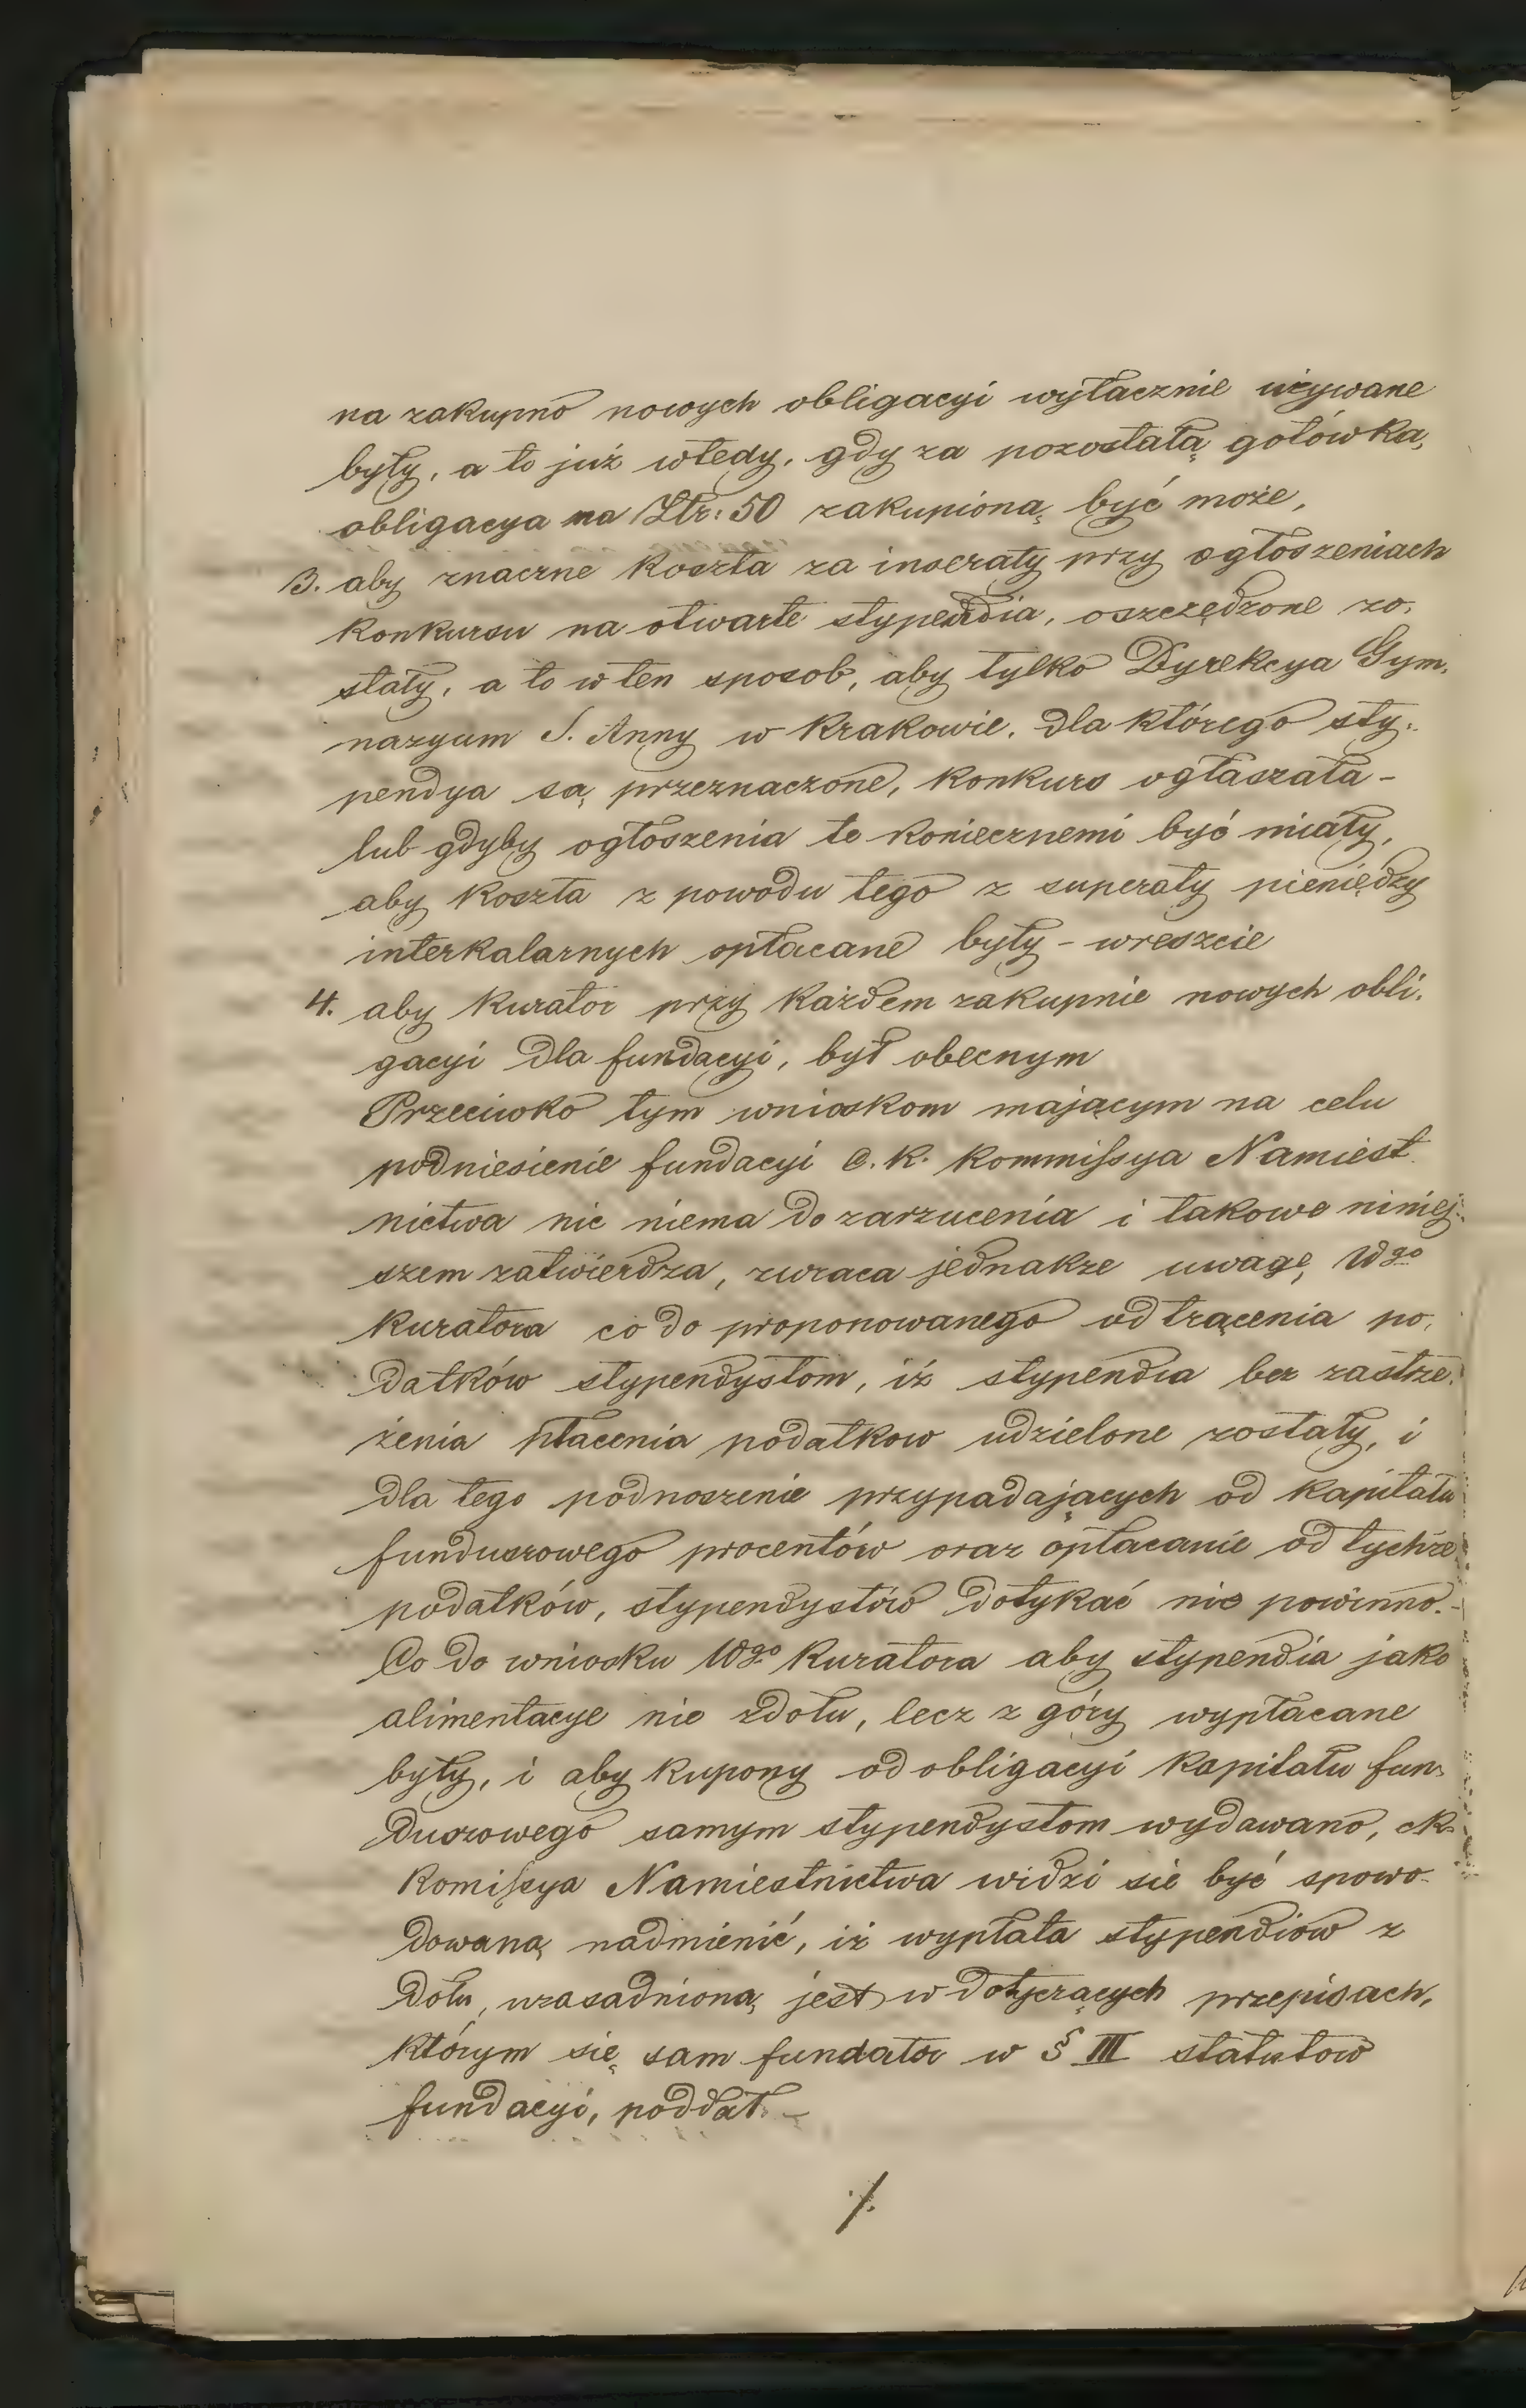 na zakupno nowych obligacyi wyłacznie używane
były, a to już wtedy, gdy za pozostałą gotówką,
obligacya na Złr: 50 zakupioną być może,
3. aby znaczne koszta za inseraty przy ogłoszeniach
konkursu na otwarte stypendia, oszczędzone zo-
stały, a to w ten sposob, aby tylko Dyrekcya Gym-
nazyum S. Anny w Krakowie, dla którego sty-
pendya są przeznaczone, konkurs ogłaszała -
lub gdyby ogłoszenia te koniecznemi być miały,
aby koszta z powodu tego z superaty pieniędzy
interkalarnych opłacane były - wreszcie
4. aby kurator przy każdem zakupnie nowych obli-
gacyi dla fundacyi, był obecnym
Przeciwko tym wnioskom mającym na celu
podniesienie fundacyi C. K. Kommissya Namiest
nictwa nic niema do zarzucenia i takowe niniej-
szem zatwierdza, zwraca jednakze uwagę Wgo
Kuratora co do proponowanego odtrącenia po-
datków stypendystom, iż stypendia bez zastrze-
żenia płacenia podatkow udzielone zostały, i
dla tego podnoszenie przypadających od kapitału
funduszowego procentów oraz opłacanie od tychże
podatków, stypendystów dotykać nie powinno. -
Co do wniosku Wgo Kuratora aby stypendia jako
alimentacye nie zdołu, lecz z góry wypłacane
były, i aby kupony od obligacyi kapitału fun-
duszowego samym stypendystom wydawano, ck.
Komissya Namiestnictwa widzi sie być spowo-
dowaną nadmienić, iż wypłata stypendiow z
dołu, uzasadnioną jest w dotyczących przepisach,
którym się sam fundator w § III statutow
fundacyi, poddał. -
./.